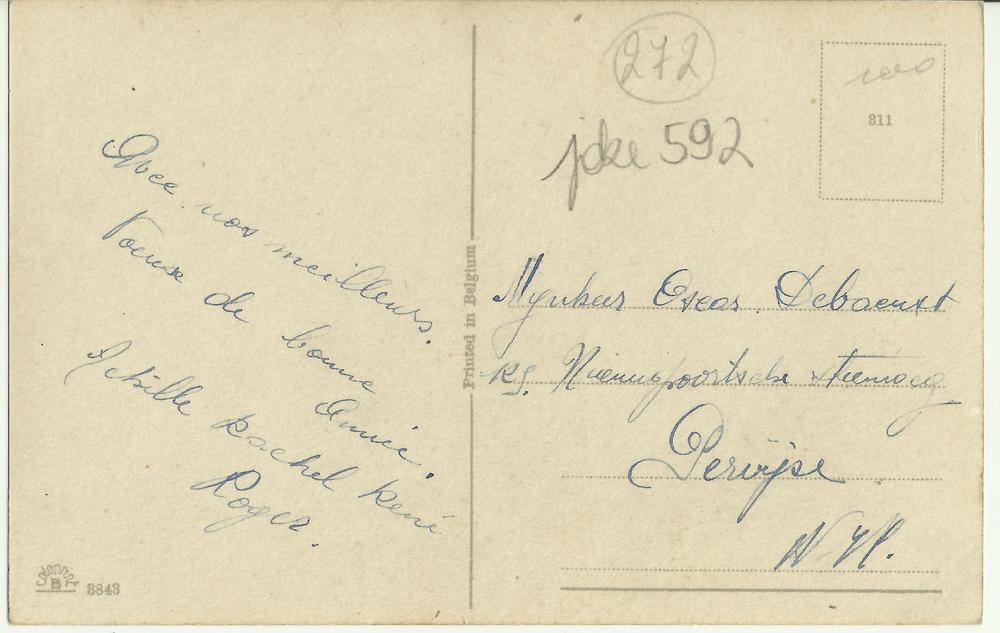 Avec nos meilleurs.
Voeux de bonne année.
Achille Rachel René
Roger.
Colorprint
B 3843
Printed in Belgium
272
jdke 592
311
Mynheer Oscar Debaenst
Pervijse
W Vl.